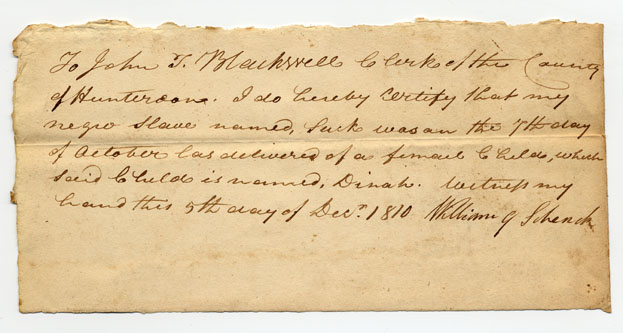 To John T. Blackwell Clerk of the County
of Hunterdon. I do hereby Certify that my
negro slave named, Suck was on the 7th day
of October las delivered of a female Child, which
said Child is named, Dinah. Witness my
hand this 5th day of Decr. 1810 William G Schenck